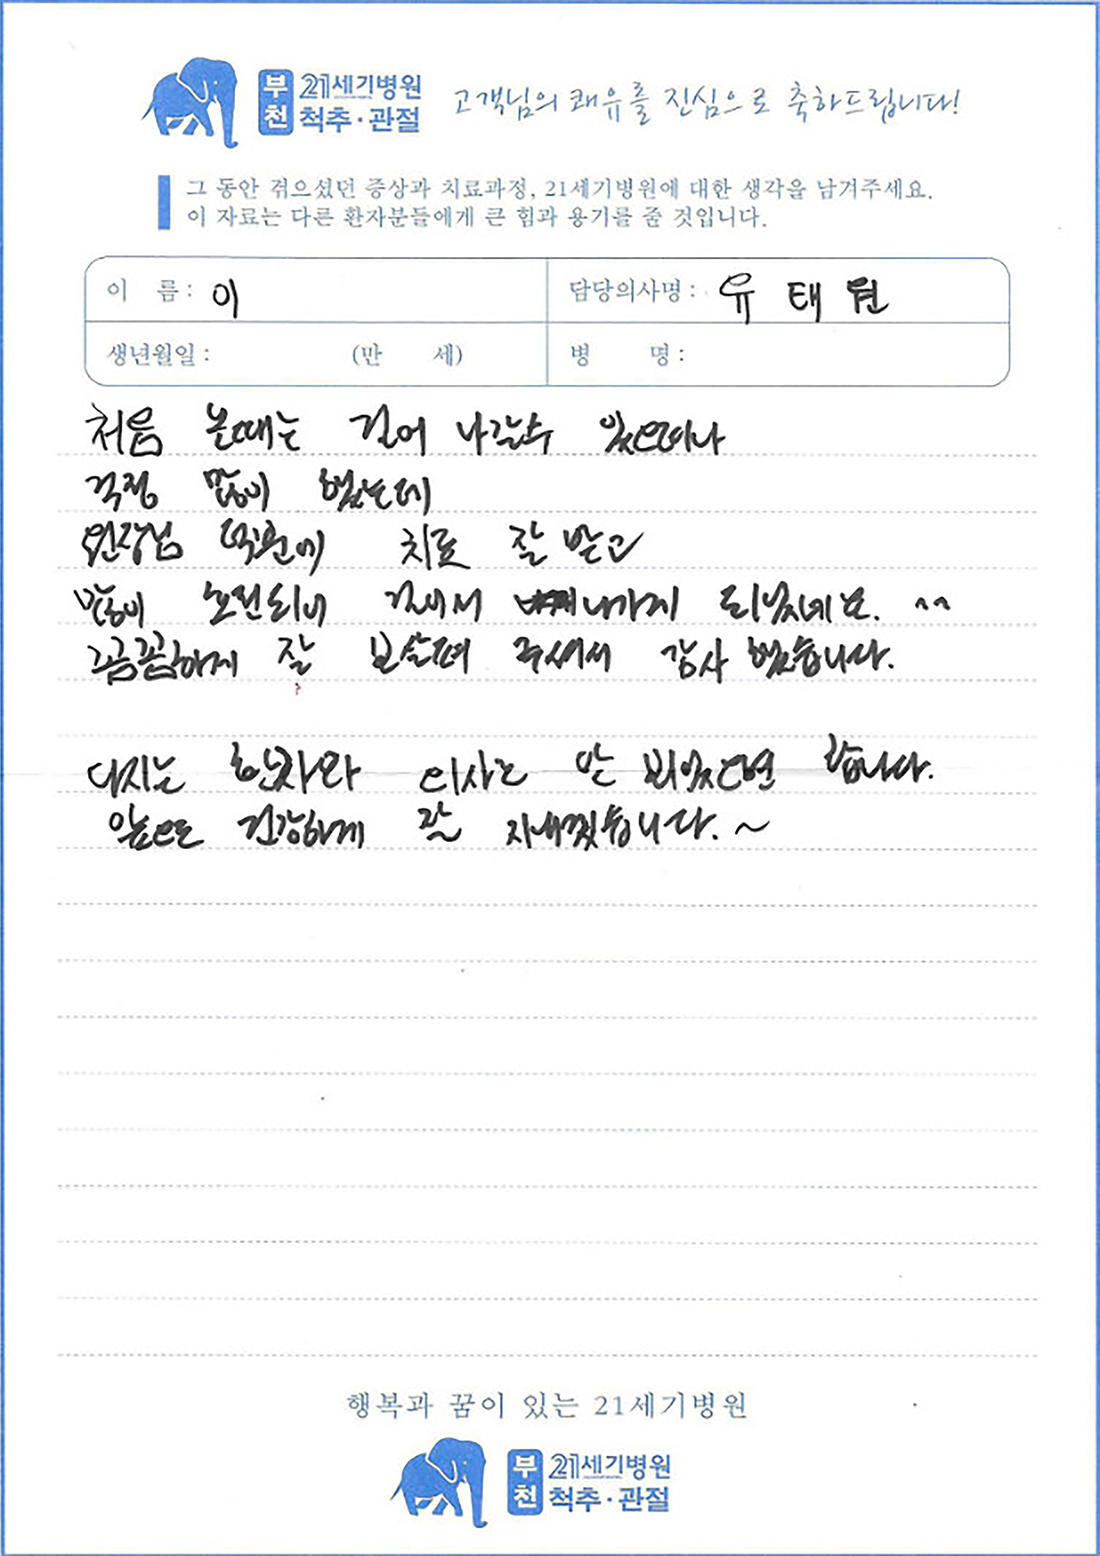 부천 21세기병원 척추·관절
고객님의 쾌유를 진심으로 축하드립니다!
그 동안 겪으셨던 증상과 치료과정, 21세기병원에 대한 생각을 남겨주세요.
이 자료는 다른 환자분들에게 큰 힘과 용기를 줄 것입니다.
이 름 : 이
담당의사명 : 유태원
생년월일 : (만 세)
병 명 :
처음 올때는 걸어 나갈수 있으려나
걱정 많이 했는데
원장님 덕분에 치료 잘 받고
많이 호전되어 걸어서 나가게 되었네요. ^^
꼼꼼하게 잘 보살펴 주셔서 감사 했습니다.
다시는 환자와 의사로 안 뵈었으면 합니다.
앞으로 건강하게 잘 지내겠습니다.~
행복과 꿈이 있는 21세기병원
부천 21세기병원 척추·관절